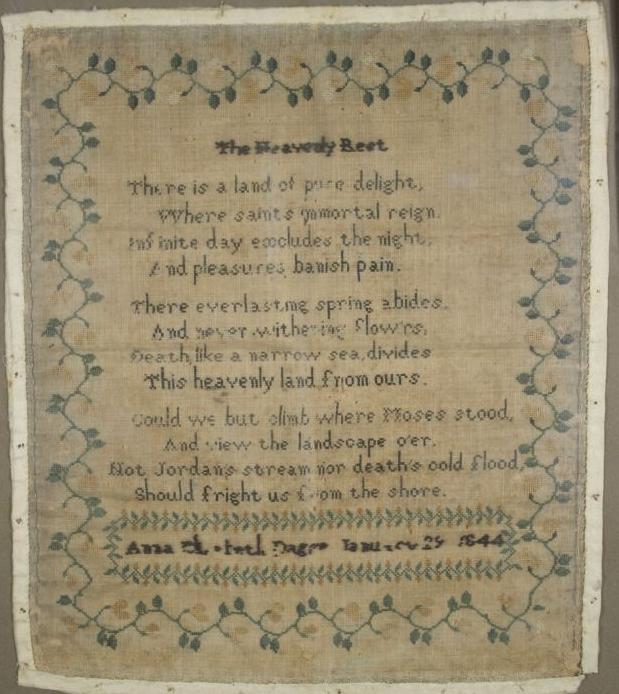 The Heavenly Rest
There is a land of pure delight,
Where saints immortal reign.
Infinite day excludes the night,
And pleasures banish pain.
There everlasting spring abides.
And never withering flow'rs,
Death, like a narrow sea, divides
This heavenly land from ours.
Could we but climb where Moses stood,
And view the landscape o'er.
Not Jordan's stream nor death's cold flood,
Should fright us from the shore.
Anna January 29 1844